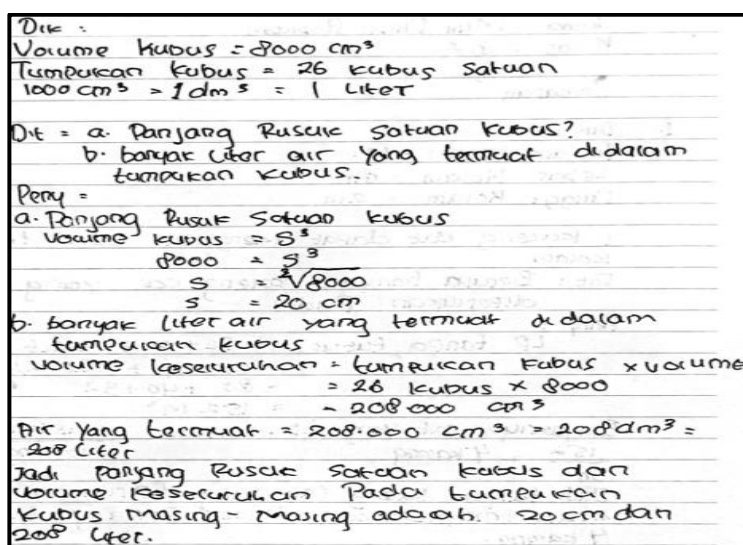 Dik :
Volume kubus = 8000 cm³
Tumpukan kubus = 26 kubus satuan
1000 cm³ = 1 dm³ = 1 Liter
Dit = a. Panjang Rusuk satuan kubus?
b. banyak liter air yang termuat didalam
tumpukan kubus.
Peny =
a. Panjang Rusuk Satuan kubus
volume kubus = S³
8000 = S³
s = ³√8000
s = 20 cm
b. banyak liter air yang termuat didalam
tumpukan kubus
volume keseluruhan = tumpukan kubus x volume
= 26 kubus x 8000
= 208.000 cm³
Air yang termuat = 208.000 cm³ = 208 dm³ =
208 Liter
Jadi panjang Rusuk satuan kubus dan
volume keseluruhan Pada tumpukan
kubus masing-masing adalah 20 cm dan
208 liter.